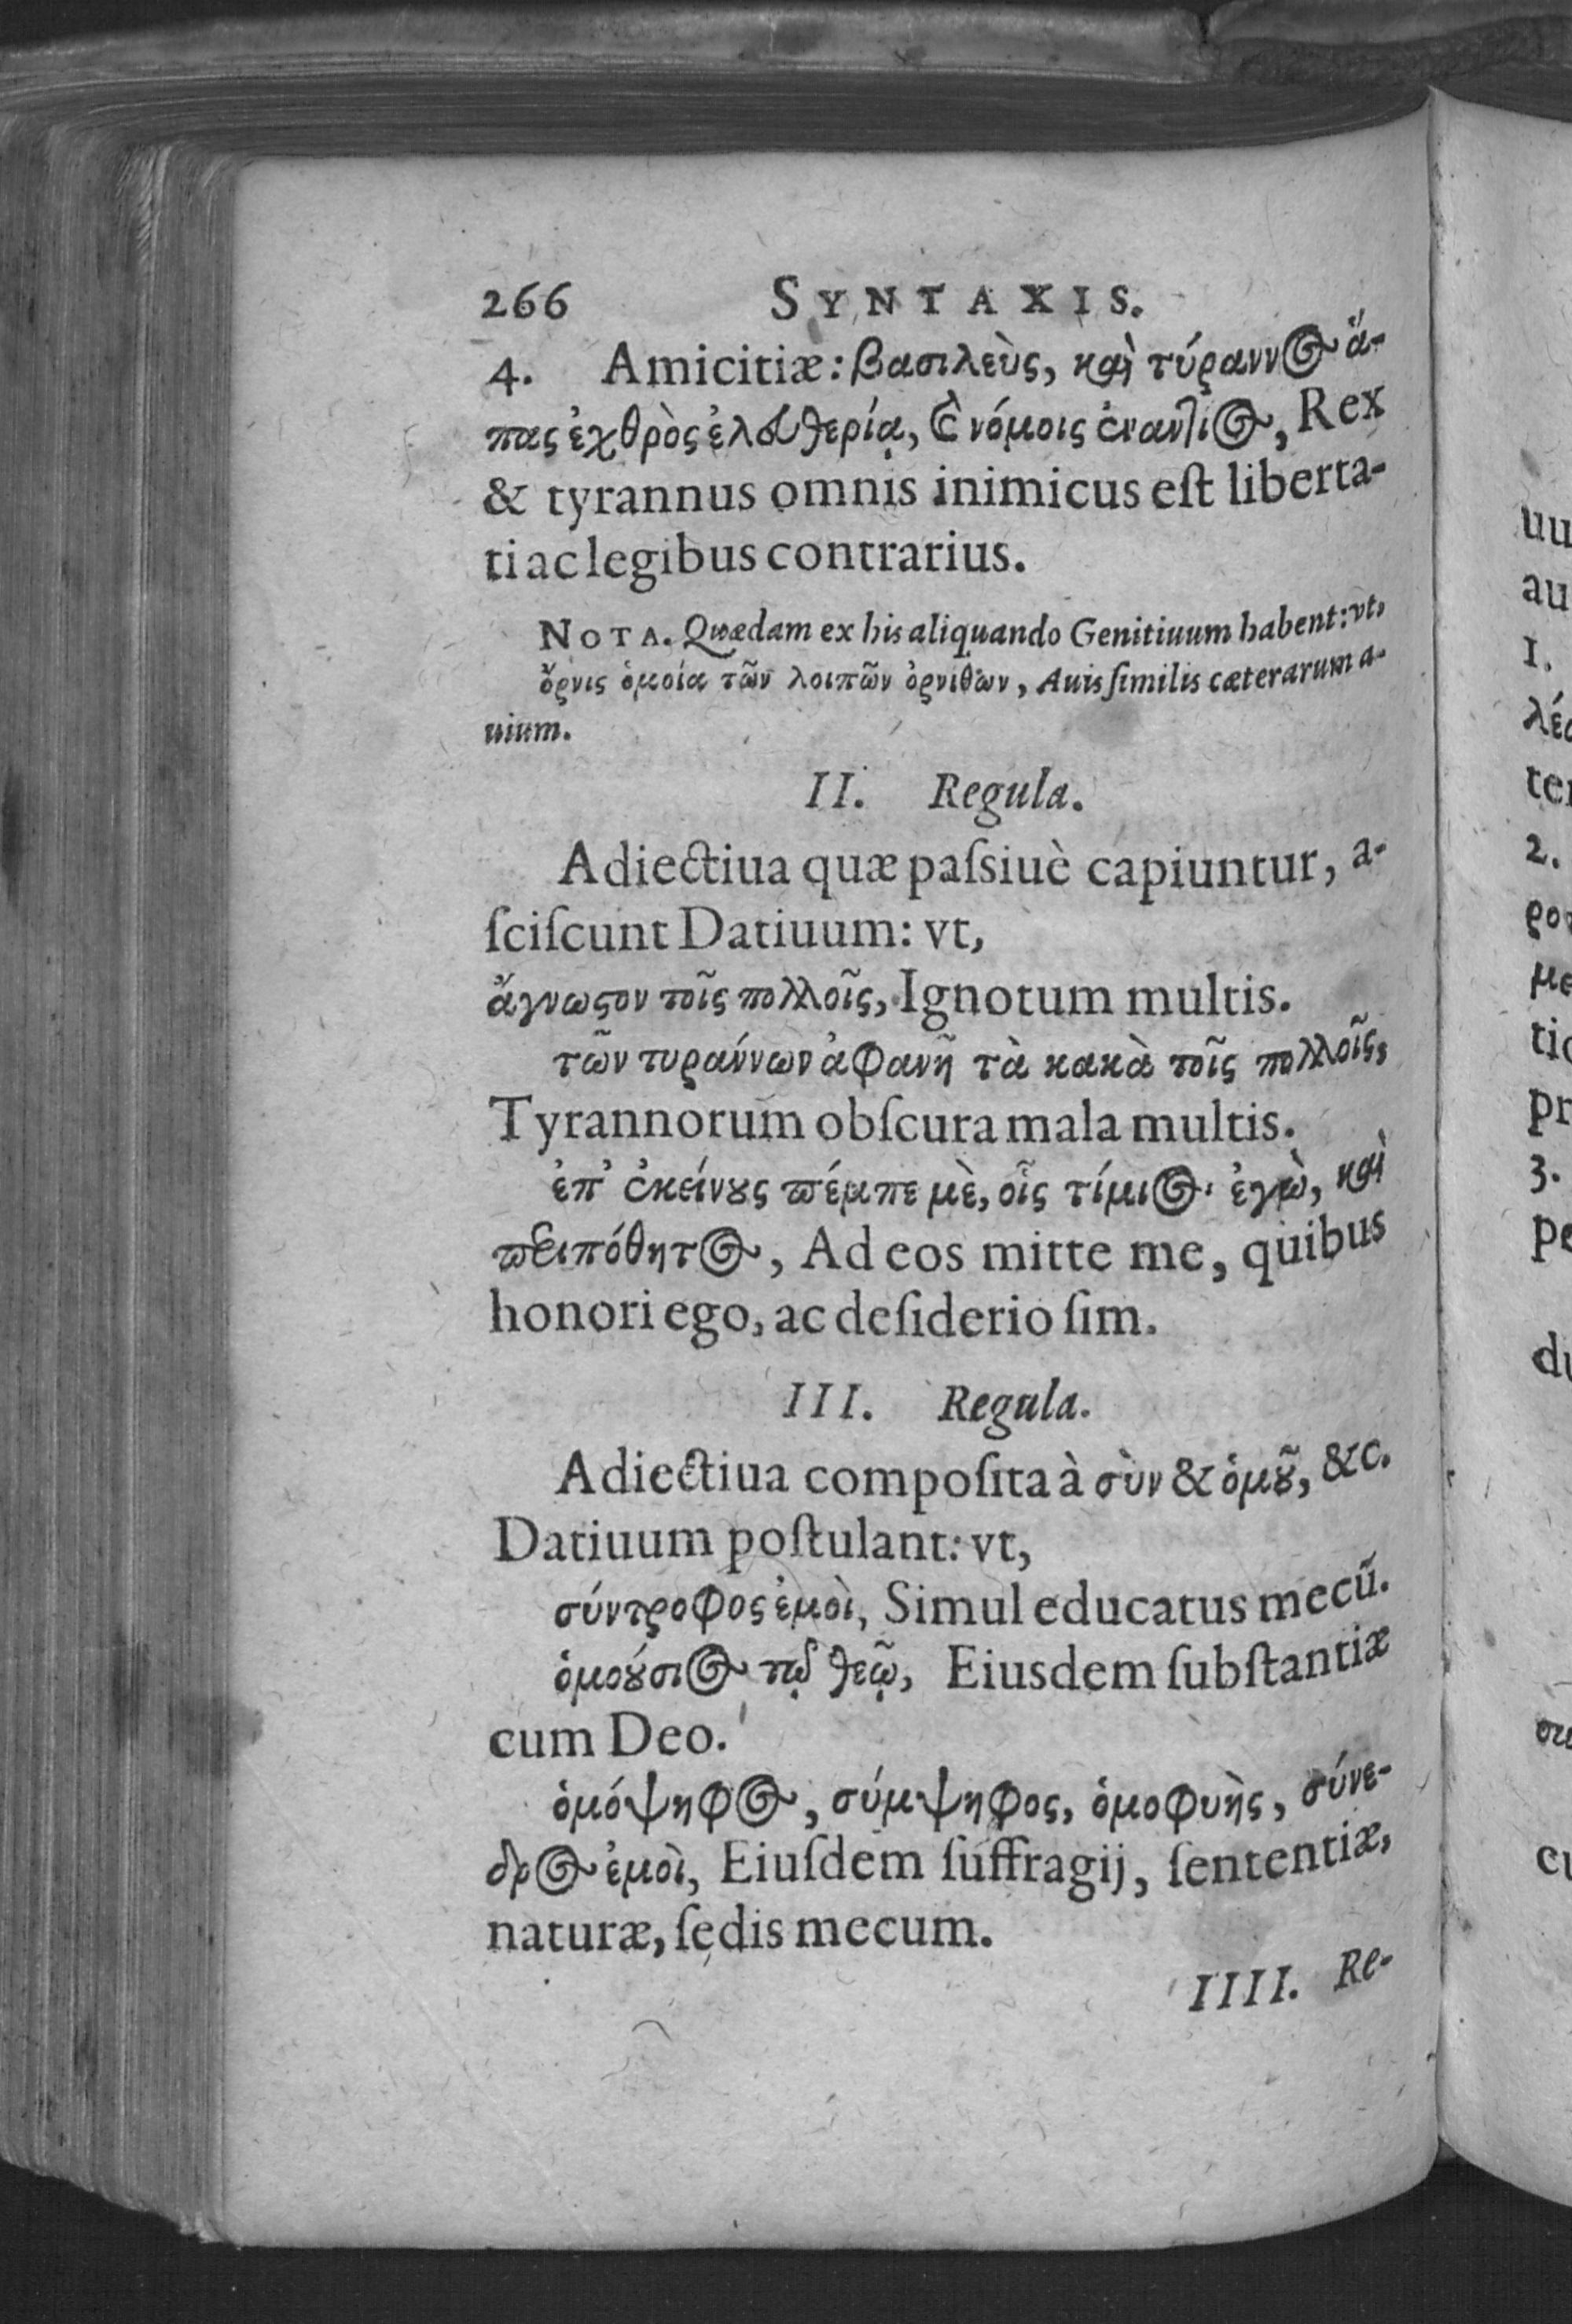 266 SYNTAXIS.
4. Amicitiæ: βασιλεὺς, καὶ τύραννος ἅ-
πας ἐχθρὸς ἐλευθερίᾳ, ϗ̀ νόμοις ἐναντίος, Rex
& tyrannus omnis inimicus eſt liberta-
ti ac legibus contrarius.
NOTA. Quædam ex his aliquando Genitiuum habent: vt,
ὄρνις ὁμοία τῶν λοιπῶν ὀρνίθων, Auis ſimilis cæterarum a-
uium.
II. Regula.
Adiectiua quæ paſsiuè capiuntur, a-
ſciſcunt Datiuum: vt,
ἄγνωστον τοῖς πολλοῖς, Ignotum multis.
τῶν τυράννων ἀφανῆ τὰ κακὰ τοῖς πολλοῖς,
Tyrannorum obſcura mala multis.
ἐπ' ἐκείνους πέμπε μὲ, οἷς τίμιος ἐγὼ, καὶ
περιπόθητος, Ad eos mitte me, quibus
honori ego, ac deſiderio ſim.
III. Regula.
Adiectiua compoſita à σὺν & ὁμοῦ, &c.
Datiuum poſtulant: vt,
σύντροφος ἐμοὶ, Simul educatus mecũ.
ὁμούσιος τῷ θεῷ, Eiusdem ſubſtantiæ
cum Deo.
ὁμόψηφος, σύμψηφος, ὁμοφυὴς, σύνε-
δρος ἐμοὶ, Eiuſdem ſuffragij, ſententiæ,
naturæ, ſedis mecum.
IIII. Re-
uu
au
1.
2.
3.